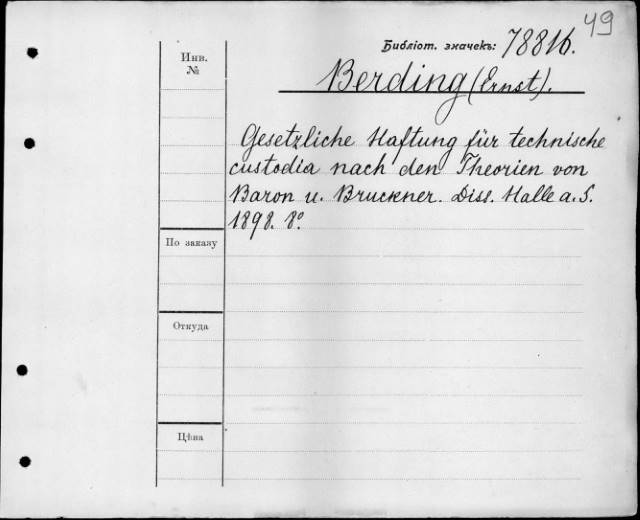 49
Библіот. значекъ: 78816.
Инв.
№
Berding (Ernst).
Gesetzliche Haftung für technische
custodia nach den Theorien von
Baron u. Bruckner. Diss. Halle a. S.
1898. 8°.
По заказу
Откуда
Цѣна